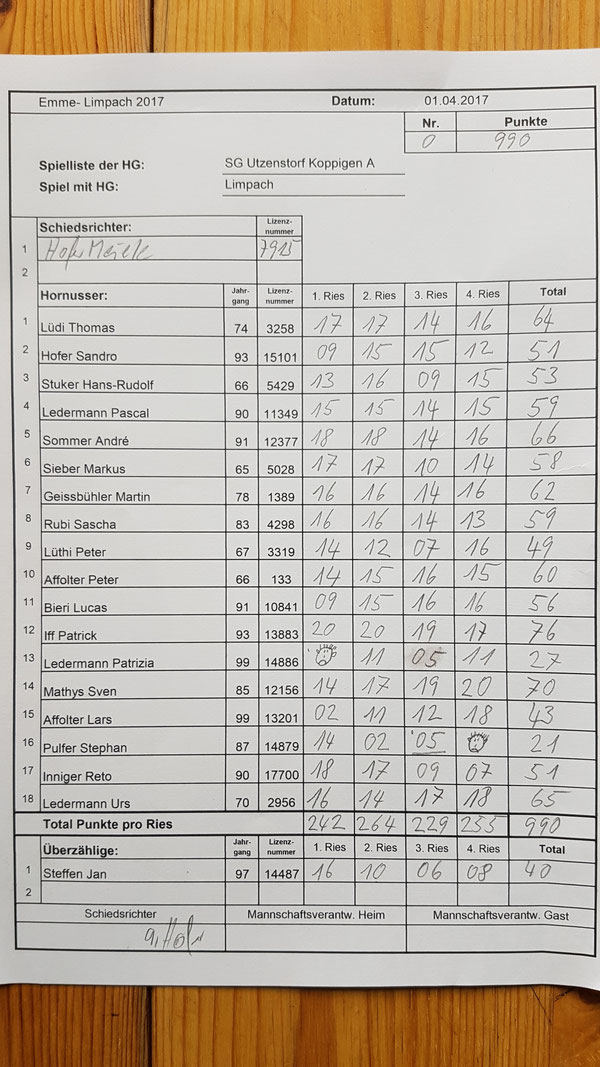 Emme- Limpach 2017 Datum: 01.04.2017
Nr. Punkte
0 990
Spielliste der HG: SG Utzenstorf Koppigen A
Spiel mit HG: Limpach
Schiedsrichter: Lizenz-nummer
1 Hofer 7915
2
Hornusser: Jahr-gang Lizenz-nummer 1. Ries 2. Ries 3. Ries 4. Ries Total
1 Lüdi Thomas 74 3258 17 17 14 16 64
2 Hofer Sandro 93 15101 09 15 15 12 51
3 Stuker Hans-Rudolf 66 5429 13 16 09 15 53
4 Ledermann Pascal 90 11349 15 15 14 15 59
5 Sommer André 91 12377 18 18 14 16 66
6 Sieber Markus 65 5028 17 17 10 14 58
7 Geissbühler Martin 78 1389 16 16 14 16 62
8 Rubi Sascha 83 4298 16 16 14 13 59
9 Lüthi Peter 67 3319 14 12 07 16 49
10 Affolter Peter 66 133 14 15 16 15 60
11 Bieri Lucas 91 10841 09 15 16 16 56
12 Iff Patrick 93 13883 20 20 19 17 76
13 Ledermann Patrizia 99 14886 11 05 11 27
14 Mathys Sven 85 12156 14 17 19 20 70
15 Affolter Lars 99 13201 02 11 12 18 43
16 Pulfer Stephan 87 14879 14 02 05 21
17 Inniger Reto 90 17700 18 17 09 07 51
18 Ledermann Urs 70 2956 16 14 17 18 65
Total Punkte pro Ries 242 264 229 255 990
Überzählige: Jahr-gang Lizenz-nummer 1. Ries 2. Ries 3. Ries 4. Ries Total
1 Steffen Jan 97 14487 16 10 06 08 40
2
Schiedsrichter Mannschaftsverantw. Heim Mannschaftsverantw. Gast